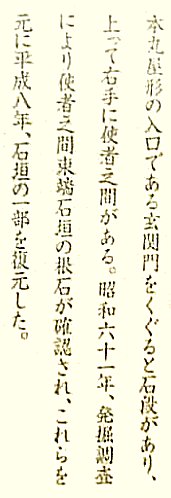 本丸屋形の入口である玄関門をくぐると石段があり、
上って右手に使者之間がある。昭和六十一年、発掘調査
により使者之間東端石垣の根石が確認され、これらを
元に平成八年、石垣の一部を復元した。